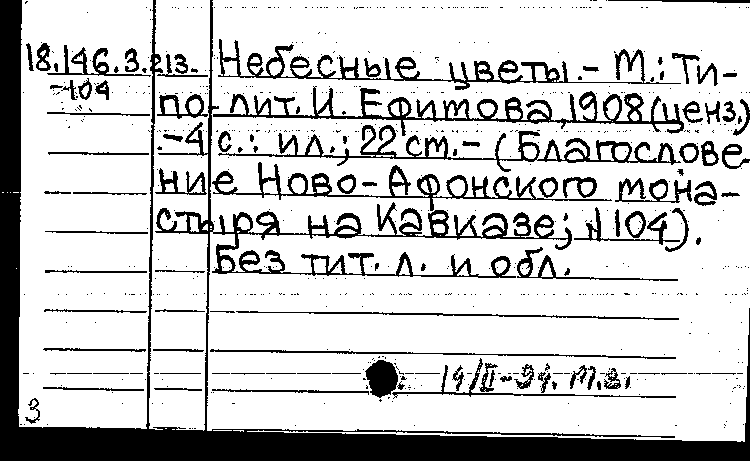 18.146.3.213. Небесные цветы.- М.: Ти-
-104 по-лит. И. Ефимова, 1908 (ценз.)
.-4 с.: ил.; 22 ст.- (Благослове-
ние Ново-Афонского мона-
стыря на Кавказе; №104).
Без тит. л. и обл.
14/II-94. М.В.
3